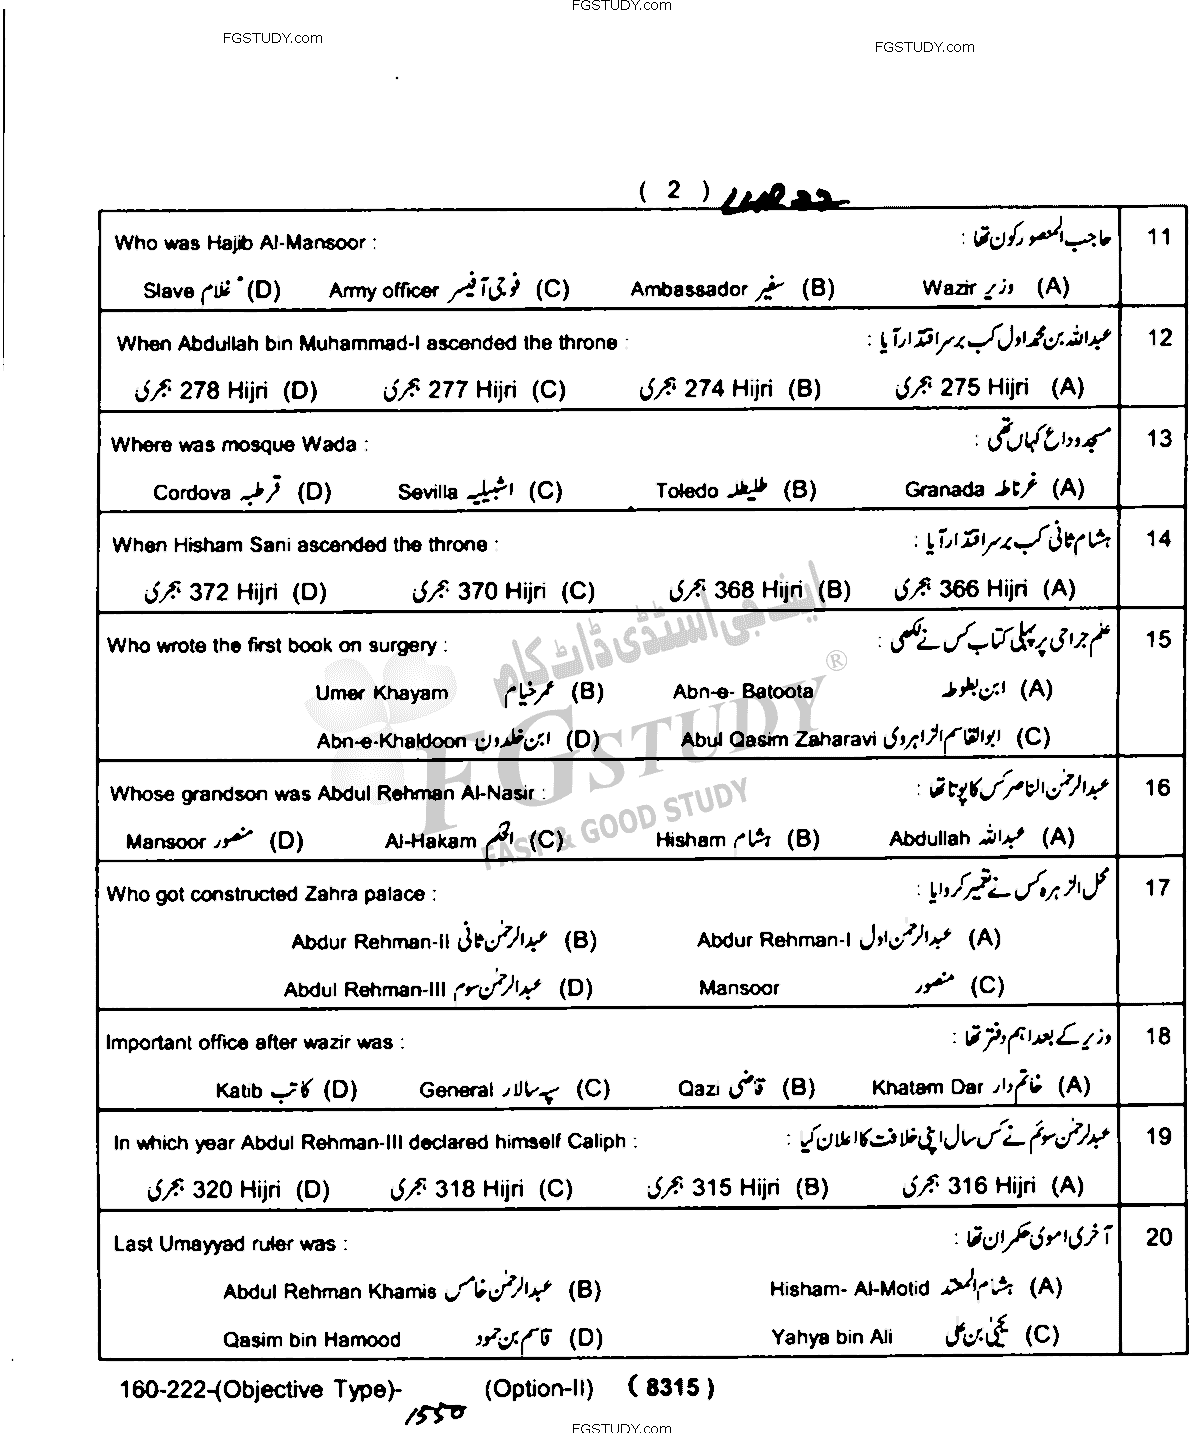 FGSTUDY.com
FGSTUDY.com
FGSTUDY.com
( 2 )
Who was Hajib Al-Mansoor : حاجب المنصور کون تھا : 11
Slave غلام (D) Army officer فوجی آفیسر (C) Ambassador سفیر (B) Wazir وزیر (A)
When Abdullah bin Muhammad-I ascended the throne : عبداللہ بن محمد اول کب برسراقتدار آیا : 12
ہجری 278 Hijri (D) ہجری 277 Hijri (C) ہجری 274 Hijri (B) ہجری 275 Hijri (A)
Where was mosque Wada : مسجد وداع کہاں تھی : 13
Cordova قرطبہ (D) Sevilla اشبیلیہ (C) Toledo طلیطلہ (B) Granada غرناطہ (A)
When Hisham Sani ascended the throne : ہشام ثانی کب برسراقتدار آیا : 14
ہجری 372 Hijri (D) ہجری 370 Hijri (C) ہجری 368 Hijri (B) ہجری 366 Hijri (A)
Who wrote the first book on surgery : علم جراحی پر پہلی کتاب کس نے لکھی : 15
Umer Khayam عمر خیام (B) Abn-e- Batoota ابن بطوطہ (A)
Abn-e-Khaldoon ابن خلدون (D) Abul Qasim Zaharavi ابوالقاسم الزاہروی (C)
Whose grandson was Abdul Rehman Al-Nasir : عبدالرحمٰن الناصر کس کا پوتا تھا : 16
Mansoor منصور (D) Al-Hakam الحکم (C) Hisham ہشام (B) Abdullah عبداللہ (A)
Who got constructed Zahra palace : محل الزہرہ کس نے تعمیر کروایا : 17
Abdur Rehman-II عبدالرحمٰن ثانی (B) Abdur Rehman-I عبدالرحمٰن اول (A)
Abdul Rehman-III عبدالرحمٰن سوم (D) Mansoor منصور (C)
Important office after wazir was : وزیر کے بعد اہم دفتر تھا : 18
Katib کاتب (D) General سپہ سالار (C) Qazi قاضی (B) Khatam Dar خاتم دار (A)
In which year Abdul Rehman-III declared himself Caliph : عبدالرحمٰن سوئم نے کس سال اپنی خلافت کا اعلان کیا : 19
ہجری 320 Hijri (D) ہجری 318 Hijri (C) ہجری 315 Hijri (B) ہجری 316 Hijri (A)
Last Umayyad ruler was : آخری اموی حکمران تھا : 20
Abdul Rehman Khamis عبدالرحمٰن خامس (B) Hisham- Al-Motid ہشام المعتد (A)
Qasim bin Hamood قاسم بن حمود (D) Yahya bin Ali یحیٰی بن علی (C)
ایف جی اسٹڈی ڈاٹ کام
FGSTUDY ®
FAST & GOOD STUDY
160-222-(Objective Type)- 1550 (Option-II) ( 8315 )
FGSTUDY.com